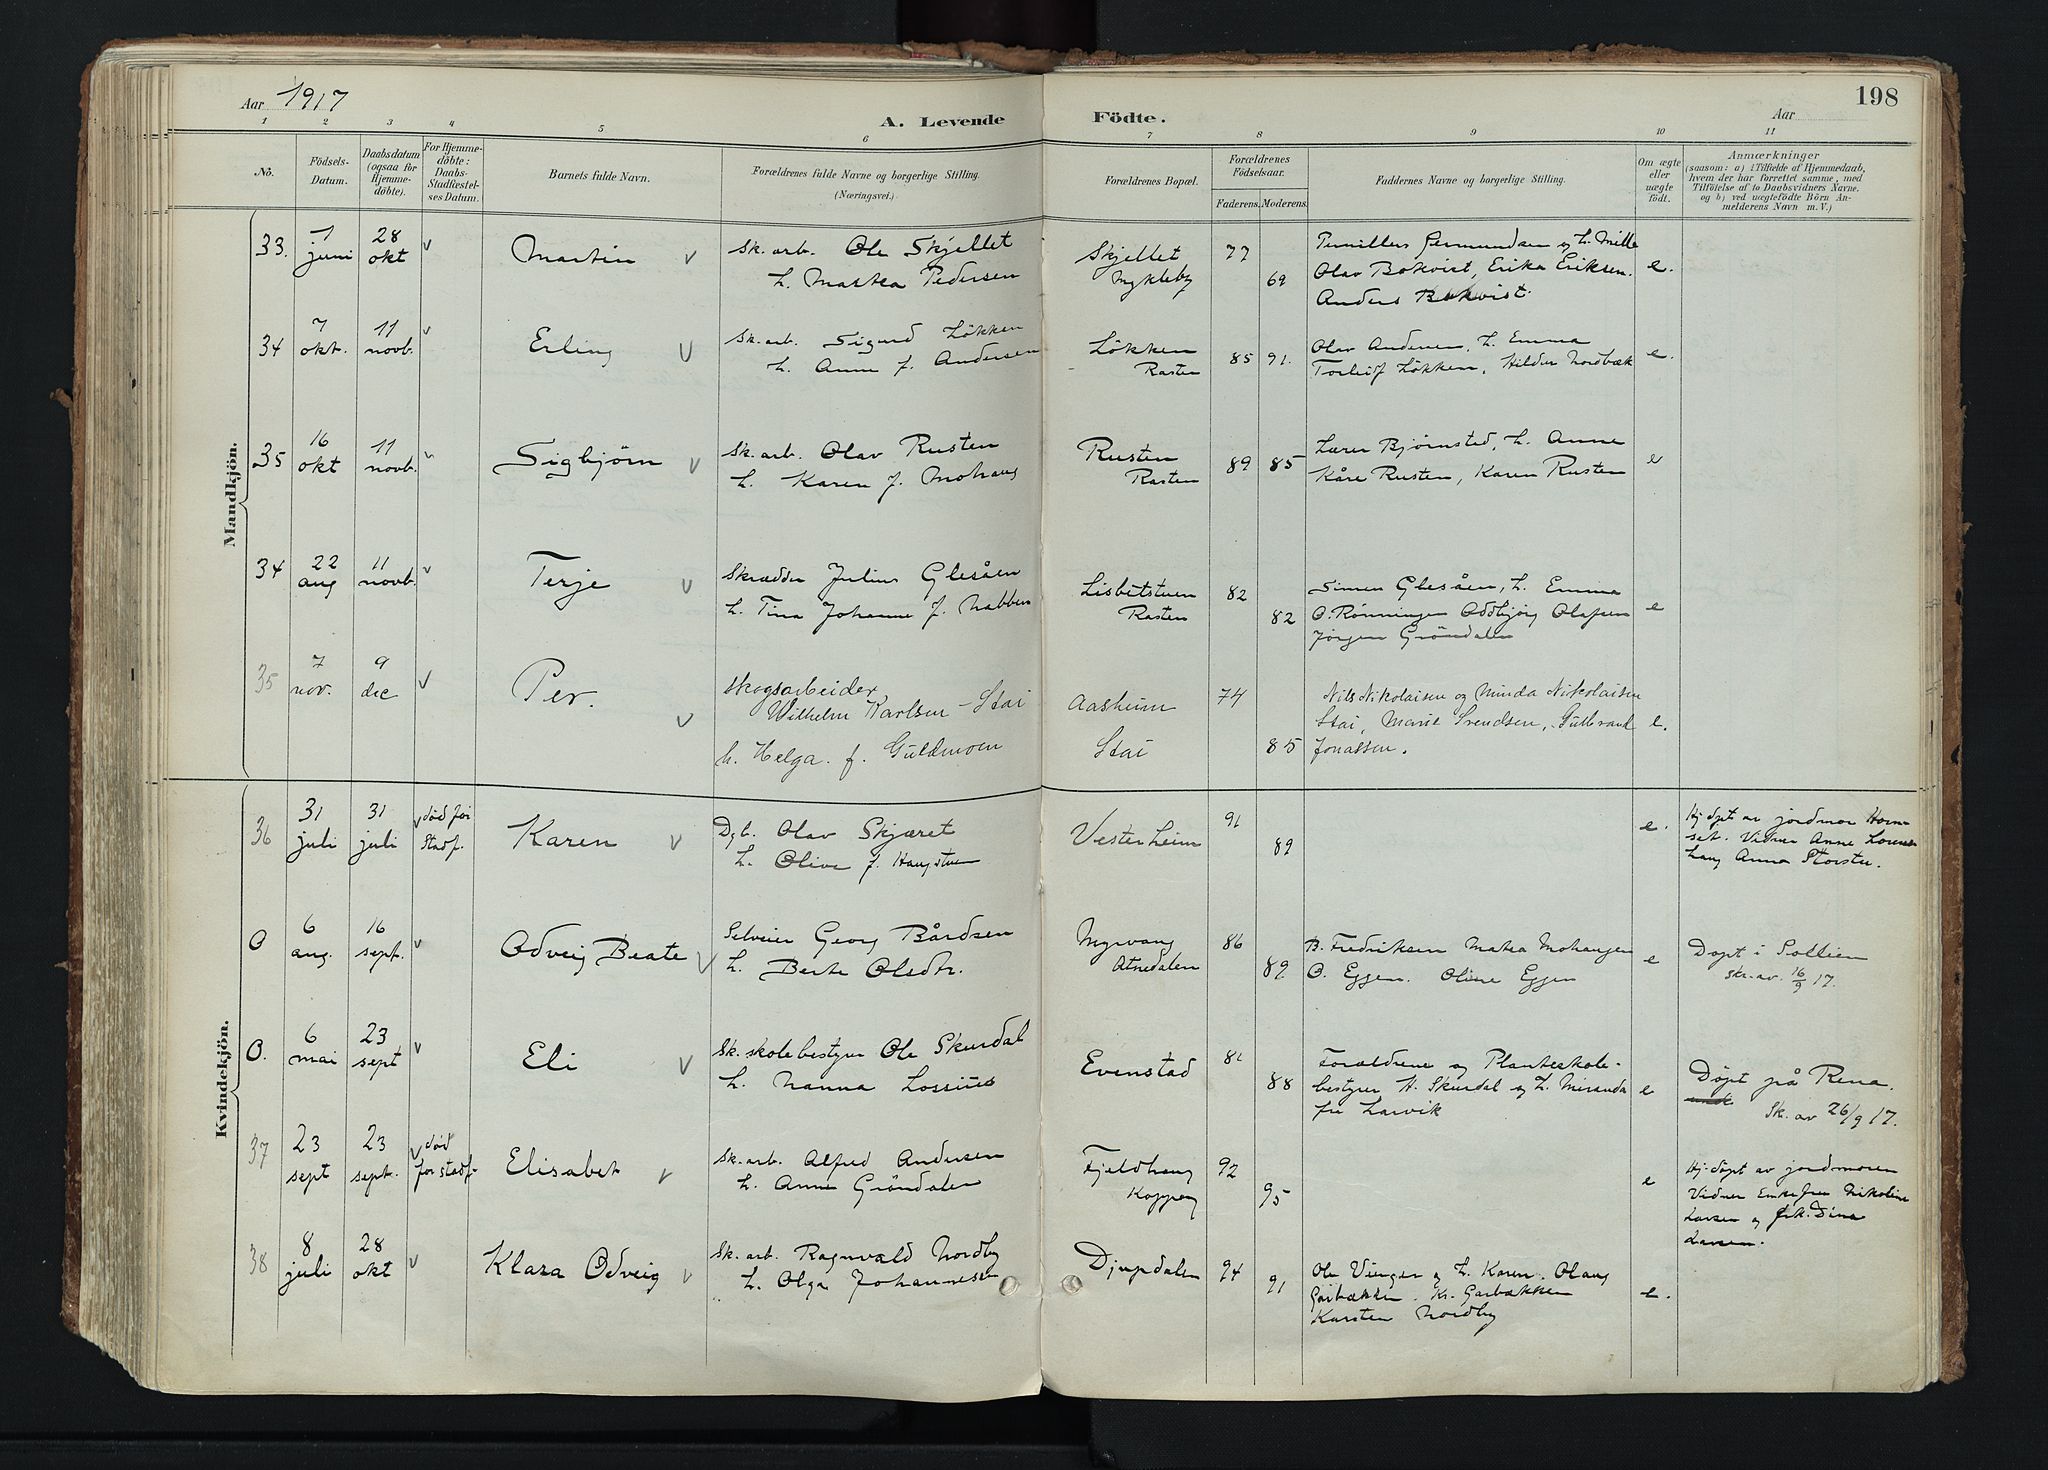 Aar 1917
A. Levende Födte.
Aar
198
1 2 3 4 5 6 7 8 9 10 11
No.
Födsels-Datum.
Daabsdatum (ogsaa for Hjemme-döbte).
For Hjemme-döbte: Daabs-Stadfæstel-ses Datum.
Barnets fulde Navn.
Forældrenes fulde Navne og borgerlige Stilling.
(Næringsvei.)
Forældrenes Bopæl.
Forældrenes Födselsaar.
Faderens. Moderens.
Faddernes Navne og borgerlige Stilling.
Om ægte eller uægte födt.
Anmærkninger
(saasom: a) i Tilfælde af Hjemmedaab,
hvem der har forrettet samme, med
Tilföielse af to Daabsvidners Navne.
og b) ved uægtefödte Börn An-
melderens Navn m. V.)
Mandkjön.
33. 7 juni 28 okt v Martin v
Sk. arb. Ole Skjellet
h. Martea Pedersen
Skjellet
Mykleby
77 69
Pernillus Germundsen og h. Mille
Olav Bokvist, Erika Eriksen.
Anders Bokvist.
e.
34 7 okt. 11 novb. v Erling v
Sk. arb. Sigurd Løkken
h. Anne f. Andersen
Løkken
Rasten
85 91.
Olav Andersen, h. Emma
Torleif Løkken, Hildur Nordbæk
e.
35 16 okt 11 novb. v Sigbjörn v
Sk. arb. Olav Rusten
h. Karen f. Mohaug
Rusten
Rasten
89 85
Lærer Bjørnsted, h. Anne
Kåre Rusten, Karen Rusten
e
34 22 aug 11 novb. v Terje v
Skrædder Julius Glesåen
h. Tina Johanne f. Nabben
Lisbetstuen
Rasten
82 82
Simen Glesåen, h. Emma
O. Rønningen Oddbjörg Olafsen
Jørgen Gröndalen
e
35 7 nov. 9 dec v Per. v
Skogsarbeider,
Wilhelm Karlsen - Stai
h. Helga. f. Guldmoen
Aasheim
Stai
74 85
Nils Nikolaisen og Minda Nikolaisen
Stai, Marie Svendsen, Gulbrand
Jonassen.
e.
Kvindekjön.
36 31 juli 31 juli v död for Stadf. Karen v
Dgb. Olav Skjæret
h. Olive f. Haugstuen
Vesterheim
91 89
e.
Hj. döpt av jordmor Horn-
set. Vidner Anne
haug Anna Storstu.
O 6 aug. 16 sept. v Odveig Beate v
Selveier Georg Bårdsen
h. Berte Olsdtr.
Myrvang
Atnedalen
86 89
B. Fredriksen Matea Mohaugen
O. Eggen. Oline Eggen
e
Döpt i Sollien
Skr. av. 16/9 17.
O. 6 mai 23 sept v Eli v
Sk. skolebestyrer Ole Skurdal
h. Nanna Lossius
Evenstad
81 88
Forældrene og Planteskole-
bestyrer H. Skurdal og h. Miranda
fra Larvik
e
Döpt på Rena.
Sk. av 26/9 17.
37 23 sept 23 sept. v död for stadf. Elisabet v
Sk. arb. Alfred Andersen
h. Anna Gröndalen
Fjeldhaug
Koppang
92 95
e
Hj. döpt av jordmoren
Vidner Enkefru Nikoline
Larsen og frk. Dina
Larsen.
38 8 juli 28 okt v Klara Odveig v
Sk. arb. Ragnvald Nordby
h. Olga Johannesen
Djupdalen
94 91
Ole Vinger og h. Karen. Olaug
Garbækken. Kr. Garbækken
Karsten Nordby
e.